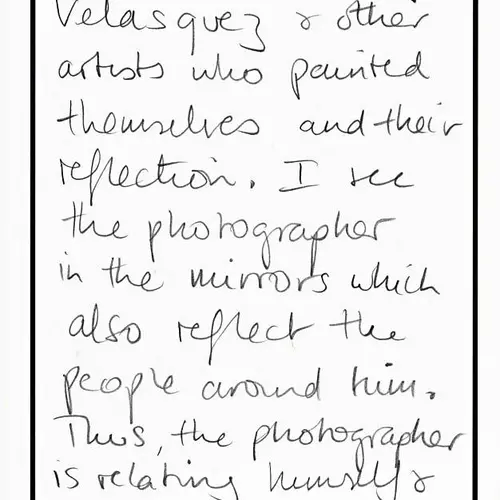 Velasquez & other
artists who painted
themselves and their
reflection. I see
the photographer
in the mirrors which
also reflect the
people around him.
Thus, the photographer
is relating himself &